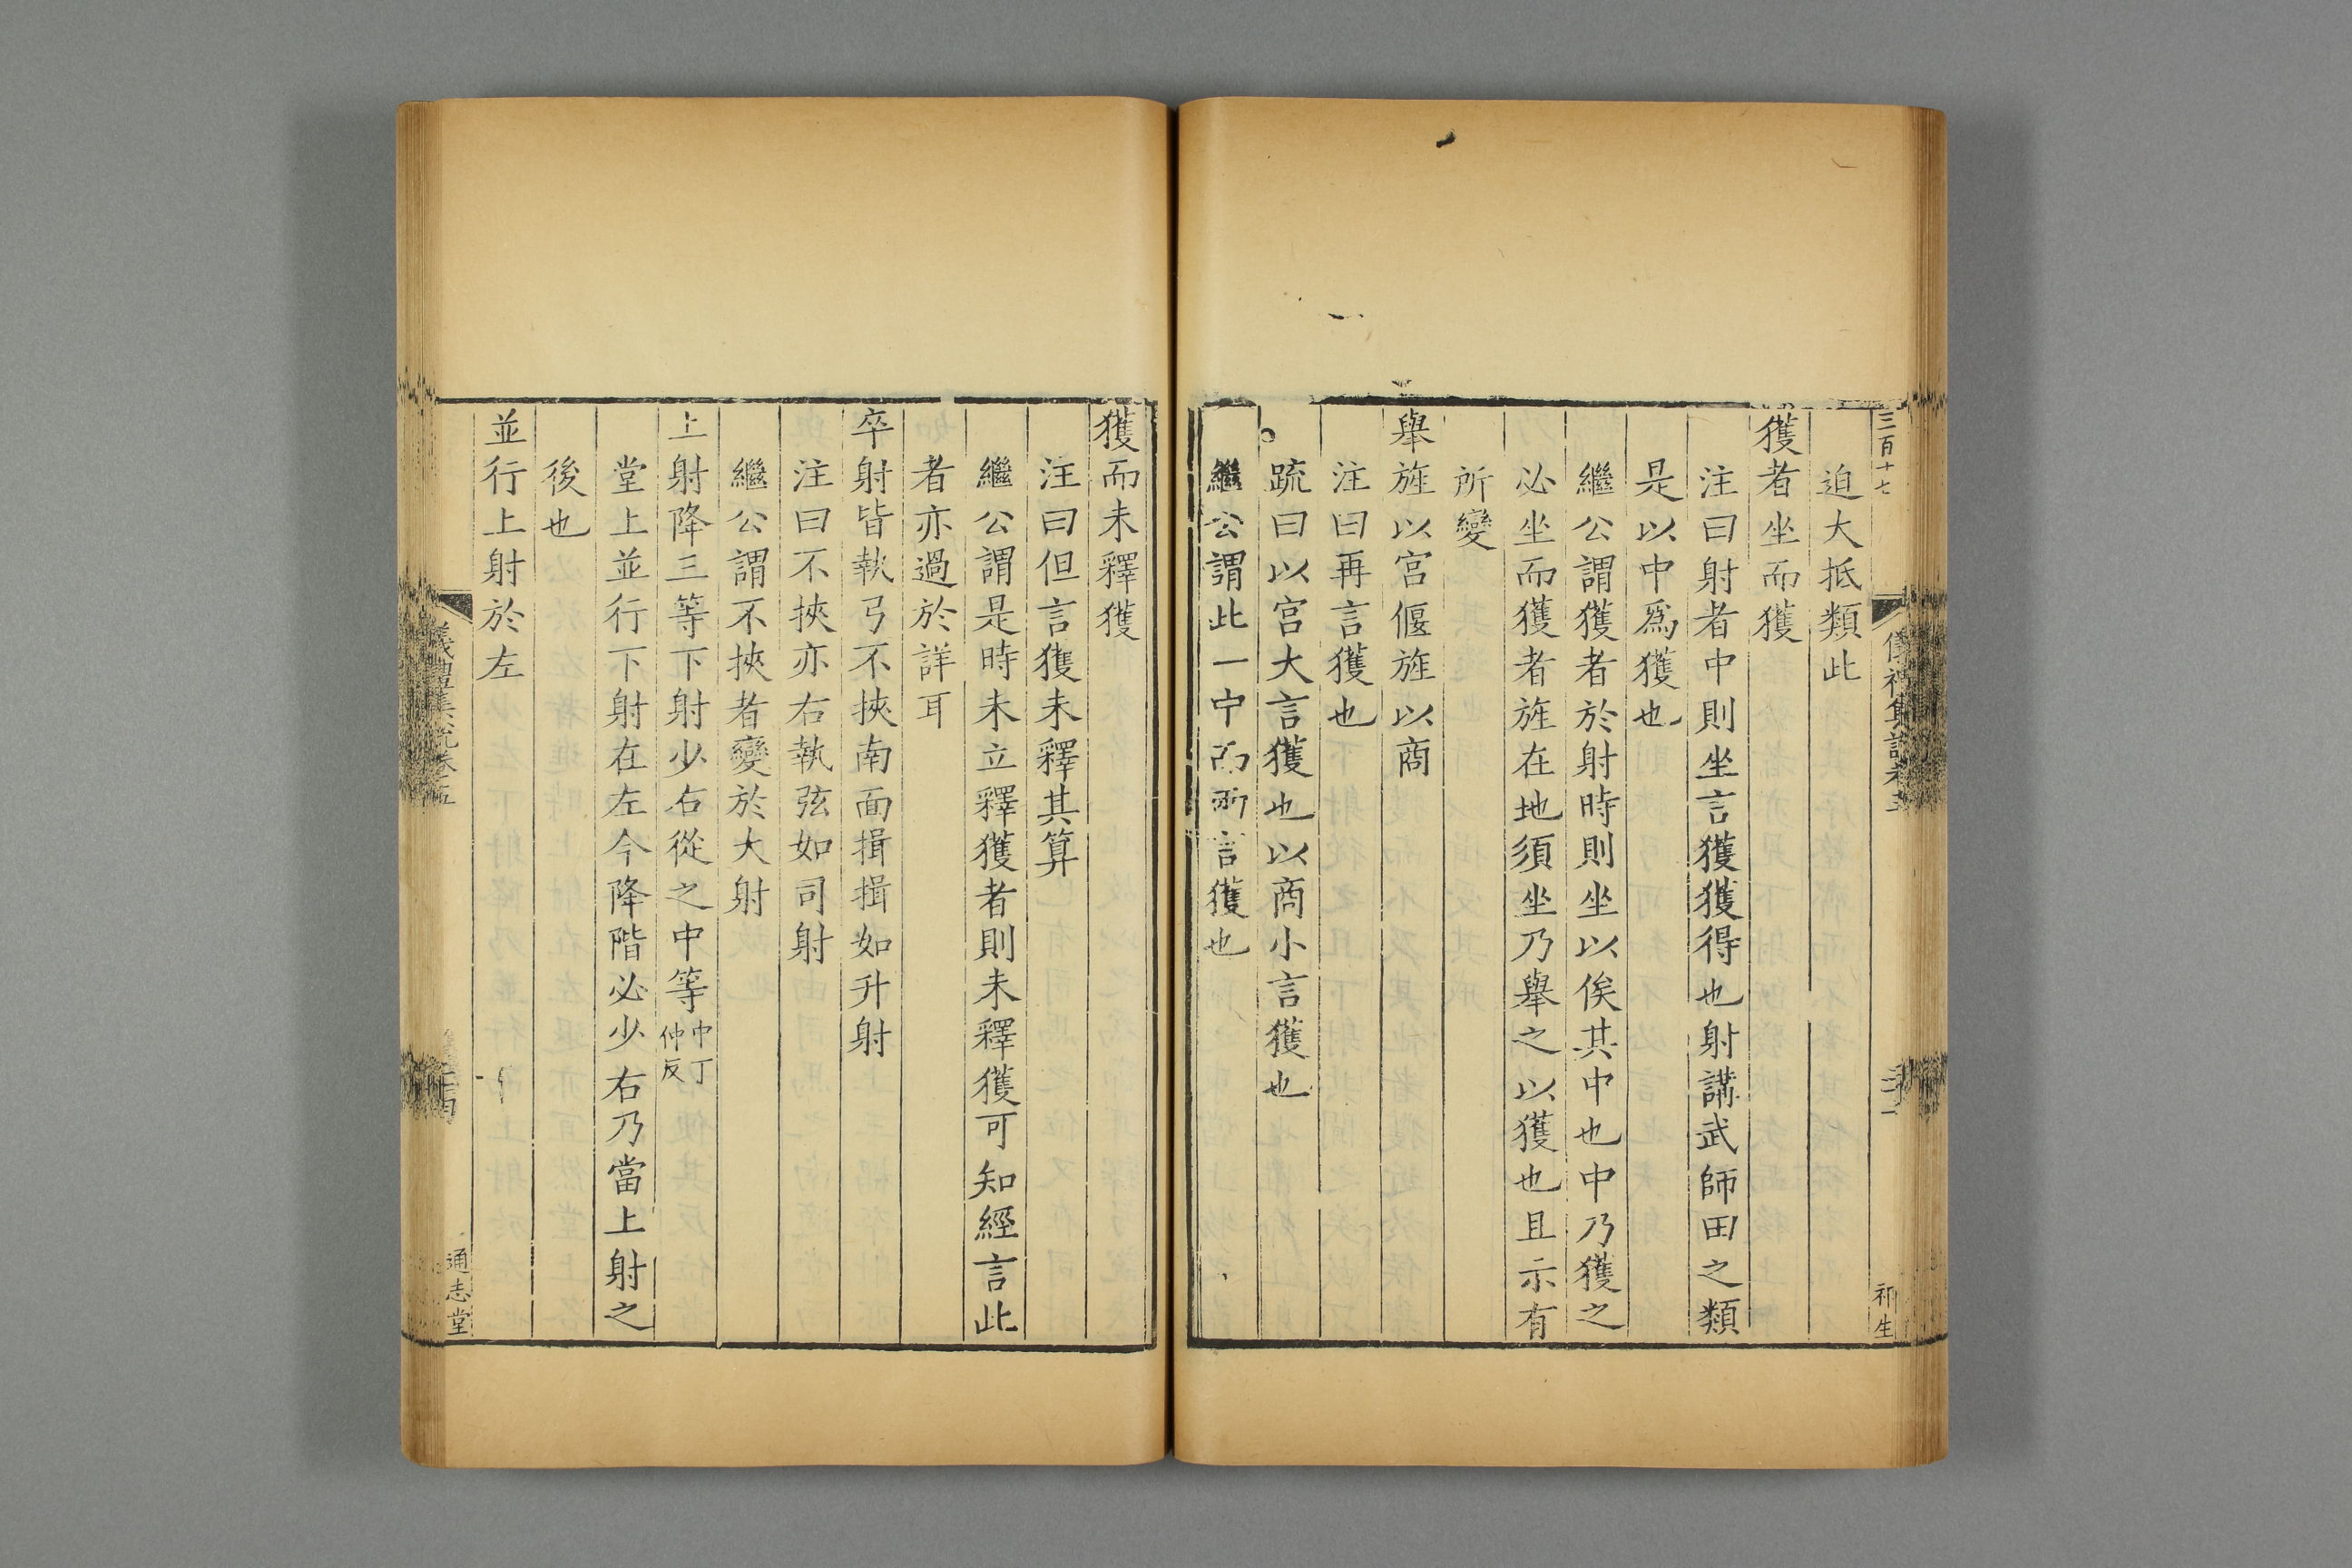 三百十七
迫大抵類此
獲者坐而獲
注曰射者中則坐言獲獲得也射講武師田之類
是以中爲獲也
繼公謂獲者於射時則坐以俟其中也中乃獲之
必坐而獲者旌在地須坐乃舉之以獲也且示有
所變
舉旌以宮偃旌以商
注曰再言獲也
疏曰以宮大言獲也以商小言獲也
繼公謂此一中而兩言獲也
祁生
獲而未釋獲
注曰但言獲未釋其算
繼公謂是時未立釋獲者則未釋獲可知經言此
者亦過於詳耳
卒射皆執弓不挾南面揖揖如升射
注曰不挾亦右執弦如司射
繼公謂不挾者變於大射
上射降三等下射少右從之中等中丁仲反
堂上並行下射在左今降階必少右乃當上射之
後也
並行上射於左
通志堂